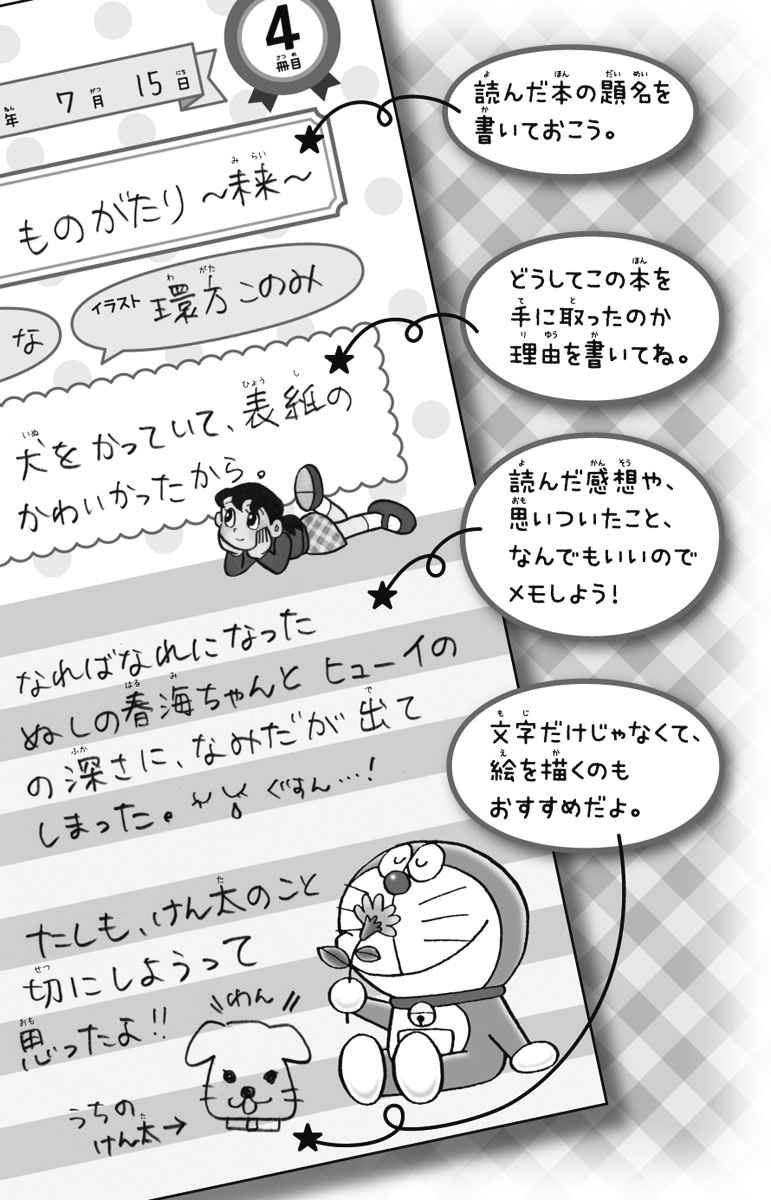 4
冊目
年 7月 15日
ものがたり ～未来～
な
イラスト 環方このみ
犬をかっていて、表紙の
かわいかったから。
なればなれになった
ぬしの春海ちゃんとヒューイの
の深さに、なみだが出て
しまった。 ぐすん…!
たしも、けん太のこと
切にしようって
思ったよ!!
わん
うちの
けん太→
読んだ本の題名を
書いておこう。
どうしてこの本を
手に取ったのか
理由を書いてね。
読んだ感想や、
思いついたこと、
なんでもいいので
メモしよう!
文字だけじゃなくて、
絵を描くのも
おすすめだよ。